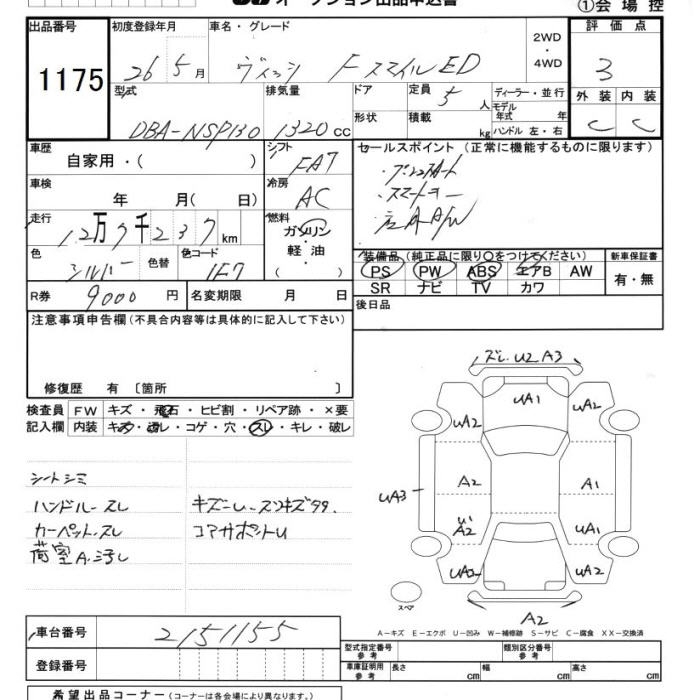 オークション出品申込書
①会場控
出品番号
1175
初度登録年月
26 5月
車名・グレード
ヴィッツ F スマイルED
2WD
・
4WD
評価点
3
外装 内装
C C
型式
DBA-NSP130
排気量
1320 cc
ドア
形状
定員
5人
積載
kg
ディーラー・並行
モデル
年式 年
ハンドル 左・右
車歴
自家用・( )
シフト
FA7
車検
年 月( 日)
冷房
AC
走行
12万7千237 km
燃料
ガソリン
軽・油
( )
色
シルバー
色替
色コード
1F7
R券
9000 円
名変期限 月 日
セールスポイント (正常に機能するものに限ります)
・スマートキー
装備品(純正品に限り○をつけてください)
PS PW ABS エアB AW
SR ナビ TV カワ
新車保証書
有・無
後日品
注意事項申告欄(不具合内容等は具体的に記入して下さい)
修復歴 有 〔箇所 〕
検査員
記入欄
FW キズ・飛石・ヒビ割・リペア跡・×要
内装 キズ・汚レ・コゲ・穴・スレ・キレ・破レ
シートシミ
ハンドルースレ
カーペット.スレ
荷室A.汚し
キズーU-スリキズタタ.
コアサポートU
ズレ.U2 A3
UA1
UA2
UA2
A2
A1
UA3
U1
A2
UA1
UA2
UA2
A2
スペア
A-キズ E-エクボ U-凹み W-補修跡 S-サビ C-腐食 XX-交換済
車台番号
2151155
登録番号
型式指定番号
参考
類別区分番号
参考
車庫証明用
参考
長さ cm
幅 cm
高さ cm
希望出品コーナー(コーナーは各会場により異なります。)